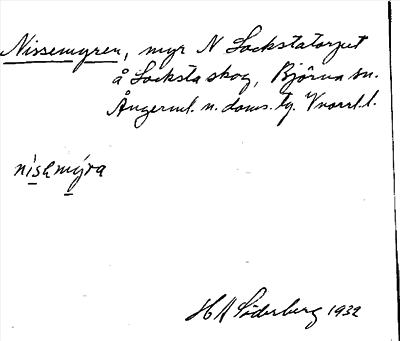 Nissemyren, myr N Lockstatorpet
å Locksta skog, Björna sn.
Ångerml. n. doms. tg. Vnorrl. l.
nisemýra
H A Söderberg 1932